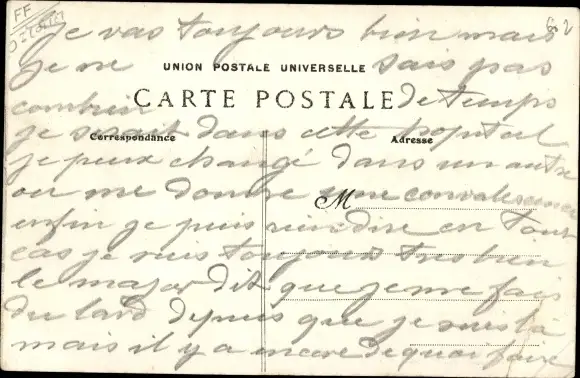 FF
602
je vas toujours bien mais
je ne sais pas
UNION POSTALE UNIVERSELLE
combien de temps
CARTE POSTALE
je serait dans cette hopital
Correspondance
Adresse
je peux changé dans un autre
ou me donner une convalescence
M
enfin je puis rien dire en tout
cas je suis toujours tres bien
le major dit que je me fais
du lard depuis que je suis là
mais il y a encore de quoi faire